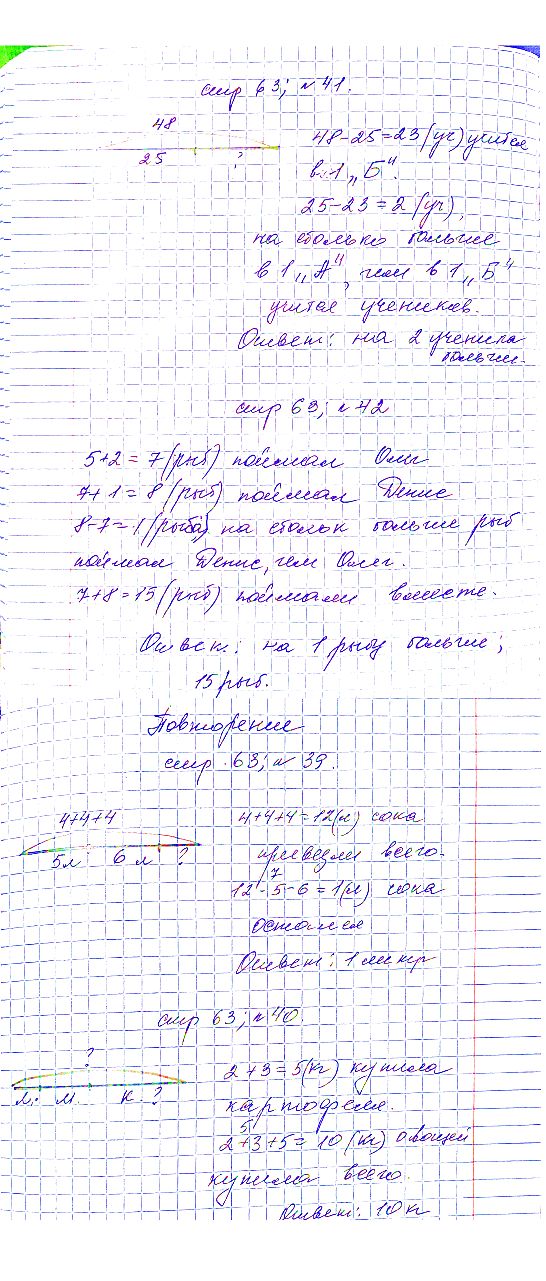 стр 63; №41.
48
25 ?
48-25=23 (уч) учится
в 1 „Б“.
25-23=2 (уч),
на столько больше
в 1 „А“, чем в 1 „Б“
учится учеников.
Ответ: на 2 ученика
больше.
стр 63; №42
5+2=7 (рыб) поймал Олег
7+1=8 (рыб) поймал Денис
8-7=1 (рыба) на стольк больше рыб
поймал Денис, чем Олег.
7+8=15 (рыб) поймали вместе.
Ответ: на 1 рыбу больше;
15 рыб.
Повторение
стр 63; №39.
4+4+4
5л 6 л ?
4+4+4=12(л) сока
привезли всего.
7
12-5-6=1(л) сока
остался
Ответ: 1 литр
стр 63; №40.
?
Л. М К. ?
2+3=5(кг) купила
картофеля.
5
2+3+5=10 (кг) овощей
купила всего.
Ответ: 10 кг